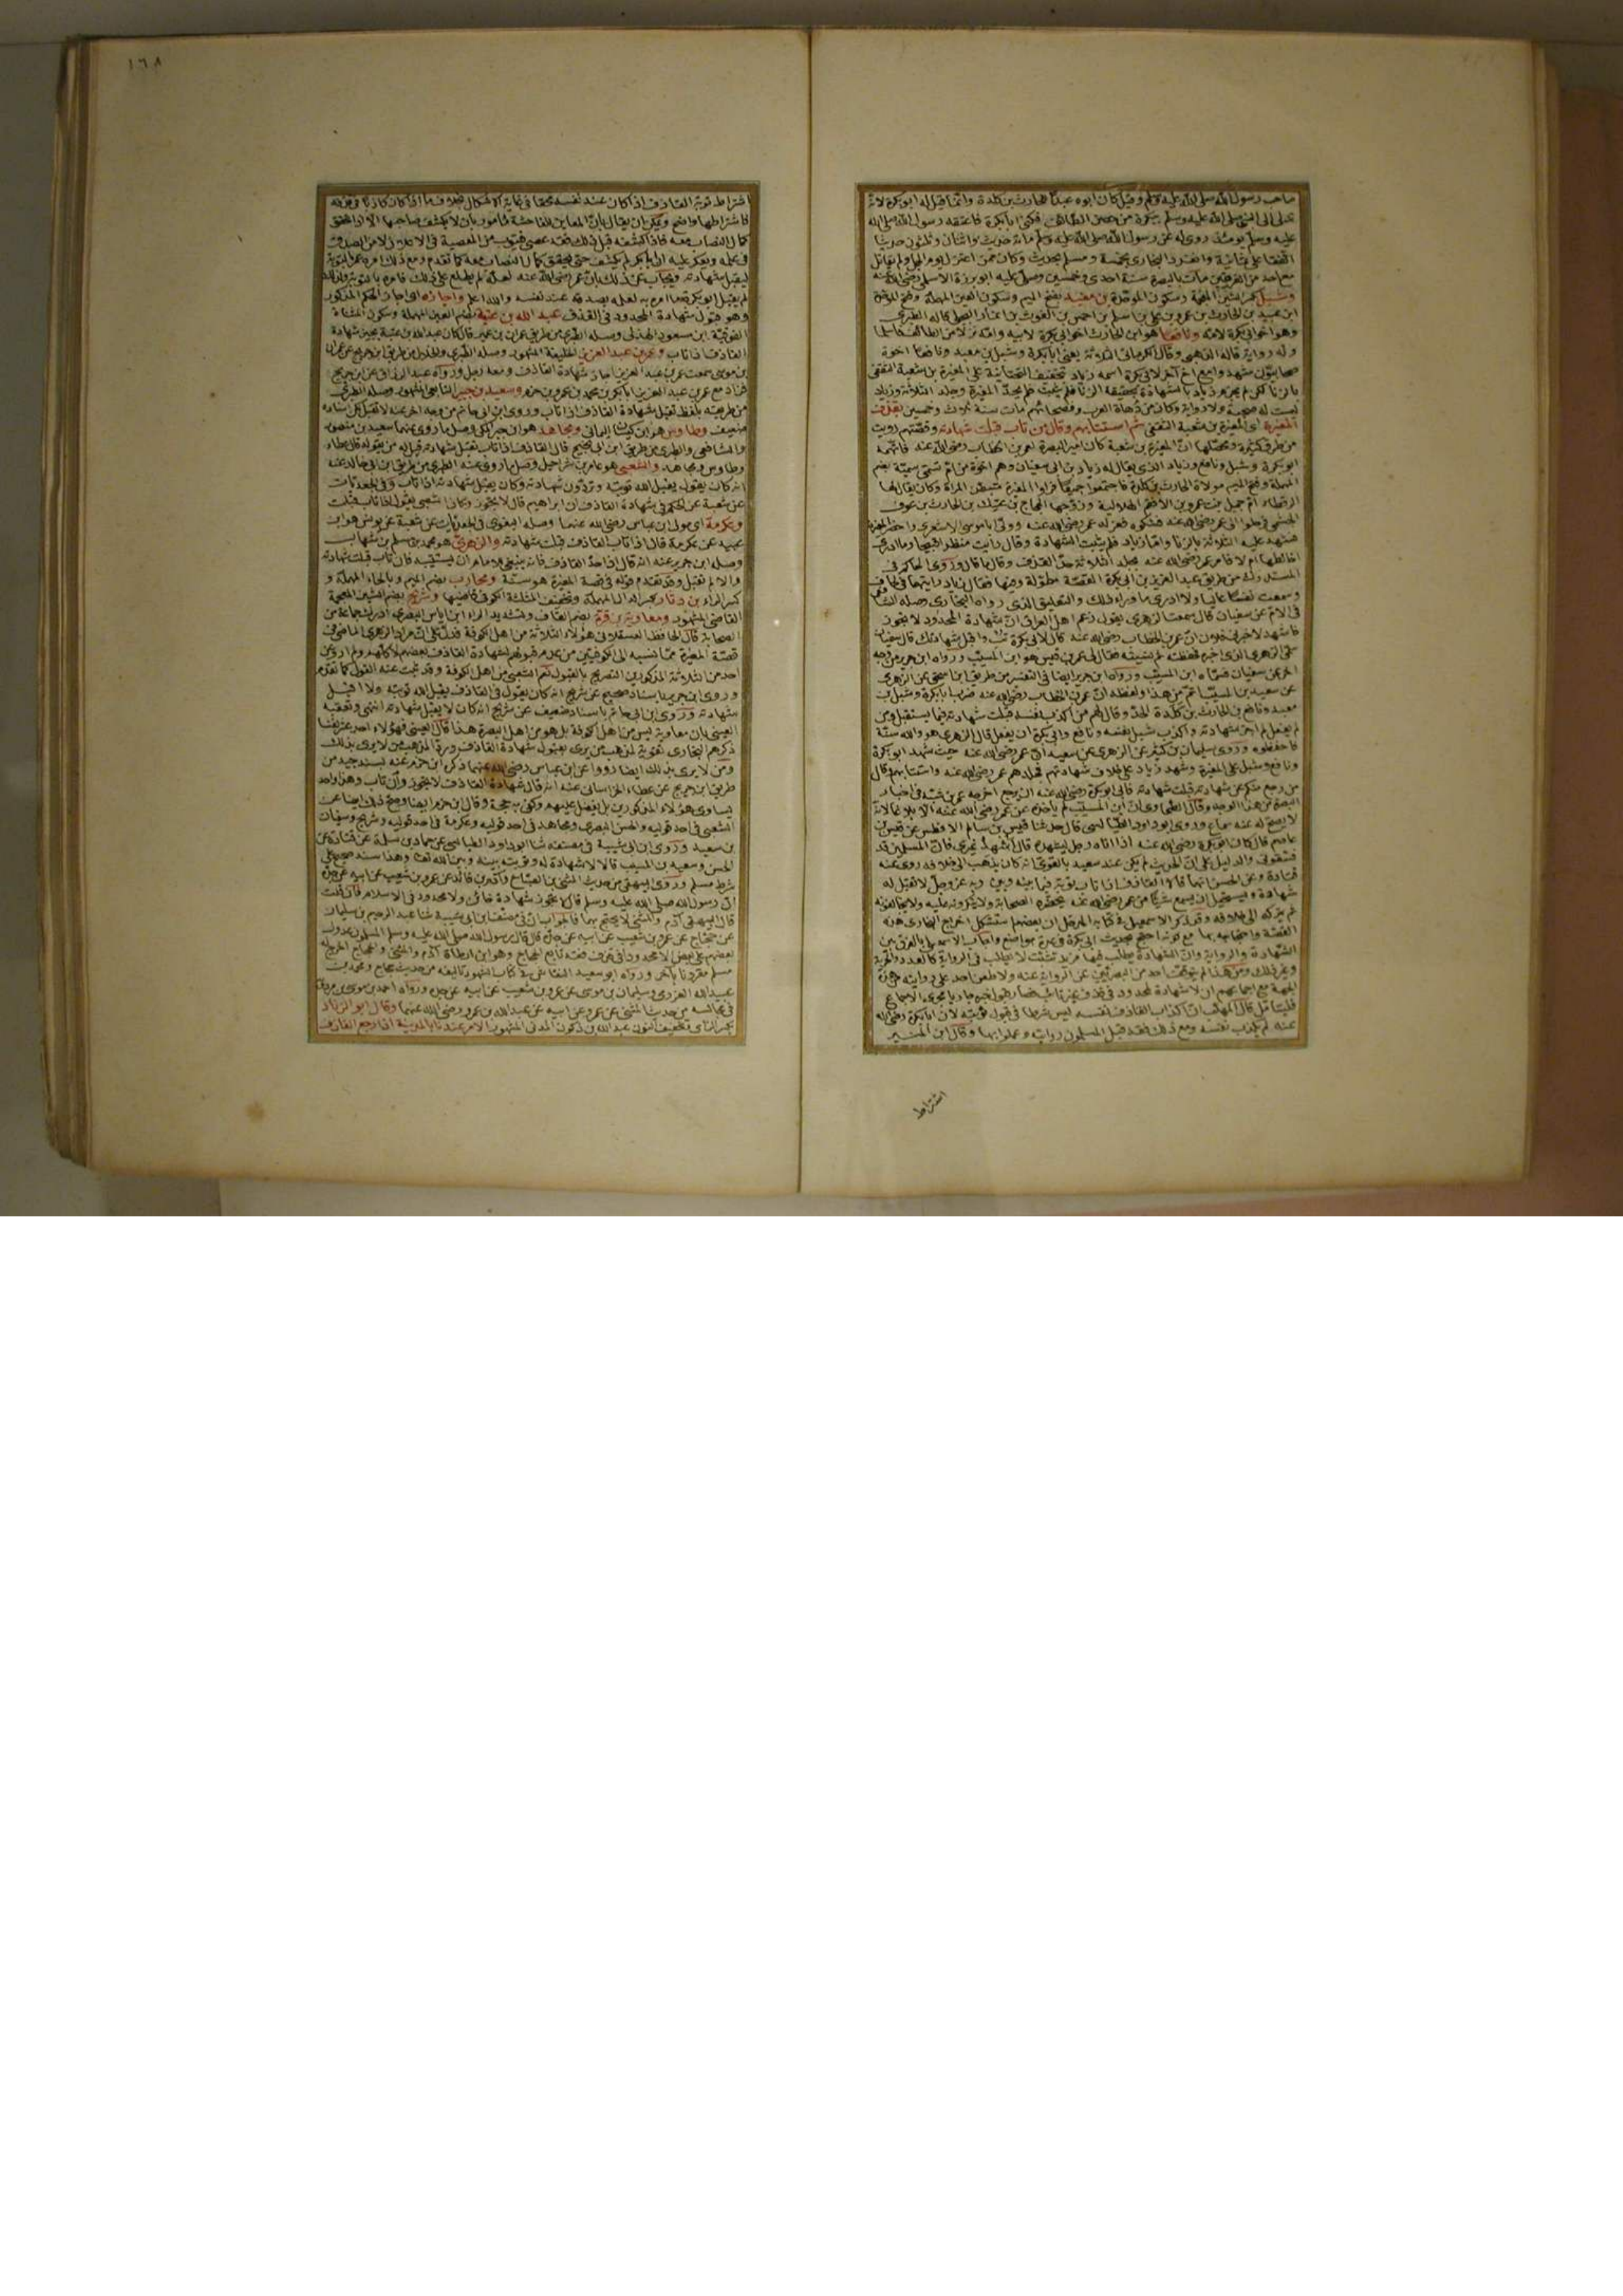 صاحب رسول الله صلى الله عليه وسلم وقيل كان ابوه عبدا للحارث بن كلدة وانما قيل له ابو بكرة لانه
تدلى الى النبي صلى الله عليه وسلم ببكرة من حصن الطائف فكنى ابا بكرة فاعتقه رسول الله صلى الله
عليه وسلم يومئذ روى له عن رسول الله صلى الله عليه وسلم مائة حديث واثنان وثلثون حديثا
اتفقا على ثمانية وانفرد البخاري بخمسة ومسلم بحديث وكان ممن اعتزل يوم الجمل ولم يقاتل
مع احد من الفريقين مات بالبصرة سنة احدى وخمسين وصلى عليه ابو برزة الاسلمي رضى الله عنه
وشبل بكسر الشين المعجمة وسكون الموحدة بن معبد بفتح الميم وسكون العين المهملة وفتح الموحدة
ابن عبيد بن الحارث بن عمرو بن علي بن اسلم بن احمس بن الغوث بن انمار البجلي قاله الطبري
وهو اخو ابي بكرة لامه ونافعا هو ابن الحارث اخو ابي بكرة لابيه وامه نزلا من الطائف فاسلما
وله رواية قاله الذهبي وقال الكرماني الثلاثة يعني ابا بكرة وشبل بن معبد ونافعا اخوة
صحابيون شهدوا مع اخ آخر لابي بكرة اسمه زياد بتخفيف التحتانية على المغيرة بن شعبة الثقفي
بالزنا لكن لم يجزم زياد بالشهادة بحقيقة الزنا فلم يثبت فلم يحد المغيرة وجلد الثلاثة وزياد
ليست له صحبة ولا رواية وكان من دهاة العرب وفصحائهم مات سنة ثلاث وخمسين بقذف
المغيرة اى المغيرة بن شعبة الثقفي ثم استتابهم وقال من تاب قبلت شهادته وقصتهم رويت
من طرق كثيرة ومحصلها ان المغيرة بن شعبة كان امير البصرة لعمر بن الخطاب رضى الله عنه فاتهمه
ابو بكرة وشبل ونافع وزياد الذى يقال له زياد بن ابى سفيان وهم اخوة من ام تسمى سمية بضم
المهملة وفتح الميم مولاة الحارث بن كلدة فاجتمعوا جميعا فراوا المغيرة متبطن المراة وكان يقال لها
الرقطاء ام جميل بنت عمرو بن الافقم الهلالية وزوجها الحجاج بن عتيك بن الحارث بن عوف
الجشمي فرحلوا الى عمر رضى الله عنه فشكوه فعزله عمر رضى الله عنه وولى ابا موسى الاشعرى واحضر المغيرة
فشهد عليه الثلاثة بالزنا واما زياد فلم يثبت الشهادة وقال رأيت منظرا قبيحا وما ادرى
اخالطها ام لا فامر عمر رضى الله عنه بجلد الثلاثة حد القذف وقال ما قال وروى الحاكم في
المستدرك من طريق عبد العزيز بن ابي بكرة القصة مطولة وفيها فقال زياد رايتهما في لحاف
وسمعت نفسا عاليا ولا ادرى ما وراء ذلك والتعليق الذى رواه البخارى وصله الشافعي
في الام عن سفيان قال سمعت الزهرى يقول زعم اهل العراق ان شهادة المحدود لا تجوز
فاشهد لاخبرني فلان ان عمر بن الخطاب رضى الله عنه قال لابي بكرة تب واقبل شهادتك قال سفيان
سمى الزهرى الذى اخبره فحفظته ثم نسيته فقال لى عمر بن قيس هو ابن المسيب ورواه ابن جرير من وجه
آخر عن سفيان فسماه ابن المسيب ورواه ابن جرير ايضا في التفسير من طريق ابن اسحق عن الزهرى
عن سعيد بن المسيب اتم من هذا ولفظه ان عمر بن الخطاب رضى الله عنه ضرب ابا بكرة وشبل بن
معبد ونافع بن الحارث بن كلدة الحد وقال لهم من اكذب نفسه قبلت شهادته فيما يستقبل ومن
لم يفعل لم اجز شهادته واكذب شبل نفسه ونافع وابى ابو بكرة ان يفعل قال الزهرى هو والله سنة
فاحفظوه وروى سليمان بن كثير عن الزهرى عن سعيد ان عمر رضى الله عنه حيث شهد ابو بكرة
ونافع وشبل على المغيرة وشهد زياد على خلاف شهادتهم فجلدهم عمر رضى الله عنه واستتابهم وقال
من رجع منكم عن شهادته قبلت شهادته فابى ابو بكرة رضى الله عنه ان يرجع اخرجه عمر بن شبة في اخبار
البصرة من هذا الوجه وقال الطحاوى ان ابن المسيب لم يأخذه عن عمر رضى الله عنه الا بلاغا لانه
لا يصح له عنه سماع وروى ابو داود الطيالسى قال حدثنا قيس بن سالم الافطس عن قيس بن
عاصم قال كان ابو بكرة رضى الله عنه اذا اتاه رجل ليشهده قال اشهد غيرى فان المسلمين قد
فسقونى والدليل على ان الحديث لم يكن عند سعيد بالقوى انه كان يذهب الى خلافه روى عنه
قتادة وعن الحسن انهما قالا القاذف اذا تاب توبته فيما بينه وبين ربه عز وجل لا تقبل له
شهادة ويستحيل ان يسمع شيئا من عمر رضى الله عنه بحضرة الصحابة ولا ينكرونه عليه ولا يخالفونه
ثم يتركه الى خلافه وقد ذكر الاسمعيلى في كتابه المدخل ان بعضهم استشكل اخراج البخارى هذه
القصة واحتجاجه بها مع كونه احتج بحديث ابى بكرة في عدة مواضع واجاب الاسمعيلى بالفرق بين
الشهادة والرواية وان الشهادة يطلب فيها مزيد تثبت لا يطلب في الرواية كالعدد والحرية
وغير ذلك ومن هذا لم يتوقف احد من البصريين عن الرواية عنه ولا طعن احد على روايته من هذه
الجهة مع اجماعهم ان لا شهادة لمحدود في قذف غير تائب فصار قبول خبره جاريا مجرى الاجماع
فليتأمل قال المهلب ان اكذاب القاذف نفسه ليس شرطا في قبول توبته لان ابا بكرة رضى الله
عنه لم يكذب نفسه ومع ذلك فقد قبل المسلمون روايته وعملوا بها وقال ابن المنير
اشتراط
١٦٨
اشتراط توبة القاذف اذا كان عند نفسه محقا في غاية الاشكال بخلاف ما اذا كان كاذبا في قذفه
فاشتراطها واضح ويمكن ان يقال بان المعاين للفاحشة مأمور بان لا يكشف صاحبها الا اذا تحقق
كمال النصاب معه فاذا كشفه قبل ذلك فقد عصى فيتوب من المعصية في الاعلان لا من الصدق
في علمه ويعكر عليه ان ابا بكرة لم يكشف حتى تحقق كمال النصاب معه كما تقدم ومع ذلك امره عمر بالتوبة
ليقبل شهادته ويجاب عن ذلك بان عمر رضى الله عنه لعله لم يطلع على ذلك فامره بالتوبة ولذلك
لم يقبل ابو بكرة ما امره به لعله بصدقه عند نفسه والله اعلم واجازه اى اجاز الحكم المذكور
وهو قبول شهادة المحدود في القذف عبد الله بن عتبة بضم العين المهملة وسكون المثناة
الفوقية ابن مسعود الهذلى وصله الطبرى من طريق عمران بن عمير قال كان عبد الله بن عتبة يجيز شهادة
القاذف اذا تاب وعمر بن عبد العزيز الخليفة المشهور وصله الطبرى والخلال من طريق ابن جريج عن عمران
بن موسى سمعت عمر بن عبد العزيز اجاز شهادة القاذف ومعه رجل ورواه عبد الرزاق عن ابن جريج
فزاد مع عمر بن عبد العزيز ابا بكر بن محمد بن عمرو بن حزم وسعيد بن جبير التابعي المشهور وصله الطبرى
من طريقه بلفظ تقبل شهادة القاذف اذا تاب وروى ابن ابى حاتم من وجه اخر عنه لا تقبل لكن اسناده
ضعيف وطاوس هو ابن كيسان اليمانى ومجاهد هو ابن جبر المكى وصل ما روى عنهما سعيد بن منصور
والشافعى والطبرى من طريق ابن ابى نجيح قال القاذف اذا تاب تقبل شهادته قيل له من يقوله قال عطاء
وطاوس ومجاهد والشعبى هو عامر بن شراحيل وصل ما روى عنه الطبرى من طريق ابن ابى خالد عنه
انه كان يقول يقبل الله توبته وتردون شهادته وكان يقبل شهادته اذا تاب وفي الجعديات
عن شعبة عن الحكم في شهادة القاذف ان ابراهيم قال لا يجوز وكان الشعبى يقول اذا تاب قبلت
وعكرمة اى مولى ابن عباس رضى الله عنهما وصله البغوى في الجعديات عن شعبة عن يونس هو ابن
عبيد عن عكرمة قال اذا تاب القاذف قبلت شهادته والزهرى هو محمد بن مسلم بن شهاب
وصله ابن جرير عنه انه قال اذا حد القاذف فانه ينبغى للامام ان يستتيبه فان تاب قبلت شهادته
والا لم تقبل وقد تقدم قوله في قصة المغيرة هو سنة ومحارب بضم الميم وبالحاء المهملة و
كسر الراء بن دثار بكسر الدال المهملة وتخفيف المثلثة الكوفي قاضيها وشريح بضم الشين المعجمة
القاضى المشهور ومعاوية بن قرة بضم القاف وتشديد الراء ابن اياس البصرى ادرك جماعة من
الصحابة قال الحافظ العسقلانى هؤلاء الثلاثة من اهل الكوفة فدل على ان مراد الزهرى الماضى في
قصة المغيرة مما نسبه الى الكوفيين من عدم قبولهم شهادة القاذف بعضهم لا كلهم ولم ار عن
احد من الثلاثة المذكورين التصريح بالقبول نعم الشعبى من اهل الكوفة وقد ثبت عنه القبول كما تقدم
وروى ابن جرير باسناد صحيح عن شريح انه كان يقول في القاذف يقبل الله توبته ولا اقبل
شهادته وروى ابن ابى حاتم باسناد ضعيف عن شريح انه كان لا يقبل شهادته انتهى وتعقبه
العينى بان معاوية ليس من اهل الكوفة بل هو من اهل البصرة هذا قال العينى فهؤلاء احد عشر نفسا
ذكرهم البخارى تقوية لمذهب من يرى بقبول شهادة القاذف وردا لمذهب من لا يرى بذلك
ومن لا يرى بذلك ايضا رووا عن ابن عباس رضى الله عنهما ذكره ابن حزم عنه بسند جيد من
طريق ابن جريج عن عطاء الخراسانى عنه انه قال شهادة القاذف لا تجوز وان تاب وهذا واحد
يساوى هؤلاء المذكورين بل يفضل عليهم وكفى به حجة وقال ابن حزم ايضا وصح ذلك ايضا عن
الشعبى في احد قوليه والحسن البصرى ومجاهد في احد قوليه وعكرمة في احد قوليه وشريح وسفيان
بن سعيد وروى ابن ابى شيبة في مصنفه ثنا ابو داود الطيالسى عن حماد بن سلمة عن قتادة عن
الحسن وسعيد بن المسيب قالا لا شهادة له وتوبته بينه وبين الله تعالى وهذا سند صحيح على
شرط مسلم وروى البيهقى من حديث المثنى بن الصباح وآدم بن فائد عن عمرو بن شعيب عن ابيه عن جده
ان رسول الله صلى الله عليه وسلم قال لا تجوز شهادة خائن ولا محدود في الاسلام فان قلت
قال البيهقى آدم والمثنى لا يحتج بهما فالجواب ان في مصنف ابن ابى شيبة ثنا عبد الرحيم بن سليمان
عن حجاج عن عمرو بن شعيب عن ابيه عن جده قال قال رسول الله صلى الله عليه وسلم المسلمون عدول
بعضهم على بعض الا محدودا في قذف فقد تابع الحجاج وهو ابن ارطاة آدم والمثنى والحجاج اخرج له
مسلم مقرونا بآخر ورواه ابو سعيد النقاش في كتاب الشهود تأليفه من حديث حجاج ومحمد بن
عبيد الله العرزمى وسليمان بن موسى عن عمرو بن شعيب عن ابيه عن جده ورواه احمد بن موسى بن مردويه
في مجالسه من حديث المثنى عن عمرو عن ابيه عن عبد الله بن عمرو رضى الله عنهما وقال ابو الزناد
بكسر الزاى وتخفيف النون عبد الله بن ذكوان المدنى المشهور الامر عندنا بالمدينة اذا رجع القاذف